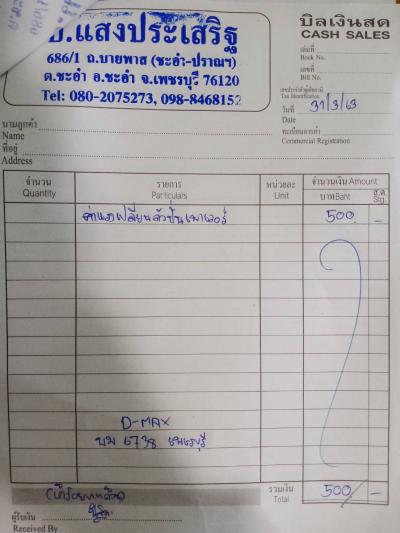 อ.แสงประเสริฐ
686/1 ถ.บายพาส (ชะอำ-ปราณฯ)
ต.ชะอำ อ.ชะอำ จ.เพชรบุรี 76120
Tel: 080-2075273, 098-8468152
บิลเงินสด
CASH SALES
เล่มที่
Book No.
เลขที่
Bill No.
เลขประจำตัวผู้เสียภาษี
Tax Identification
วันที่ 31/3/63
Date
ทะเบียนการค้า
Commercial Registration
นามลูกค้า
Name
ที่อยู่
Address
จำนวน รายการ หน่วยละ จำนวนเงิน Amount
Quantity Particulars Unit บาท Baht ส.ต. Stg.
ค่าแรงเปลี่ยนตัวปั๊มเพาเวอร์ 500 -
D-MAX
บม 6738 เพชรบุรี
(ห้าร้อยบาทถ้วน)
รวมเงิน 500 -
Total
ผู้รับเงิน
Received By